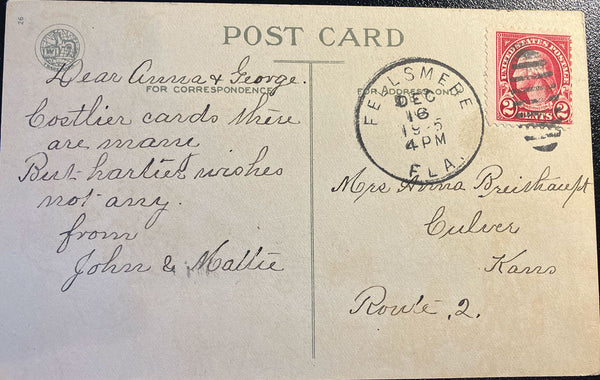 26
POST CARD
Dear Anna & George.
FOR CORRESPONDENCE
Costlier cards there
are manie
But hartier wishes
not any.
from
John & Mattie
FOR ADDRESS ONLY
FELLSMERE
DEC
16
4 PM
FLA.
UNITED STATES POSTAGE
2 CENTS 2
Mrs Anna Breithaupt
Culver
Kans
Route 2.